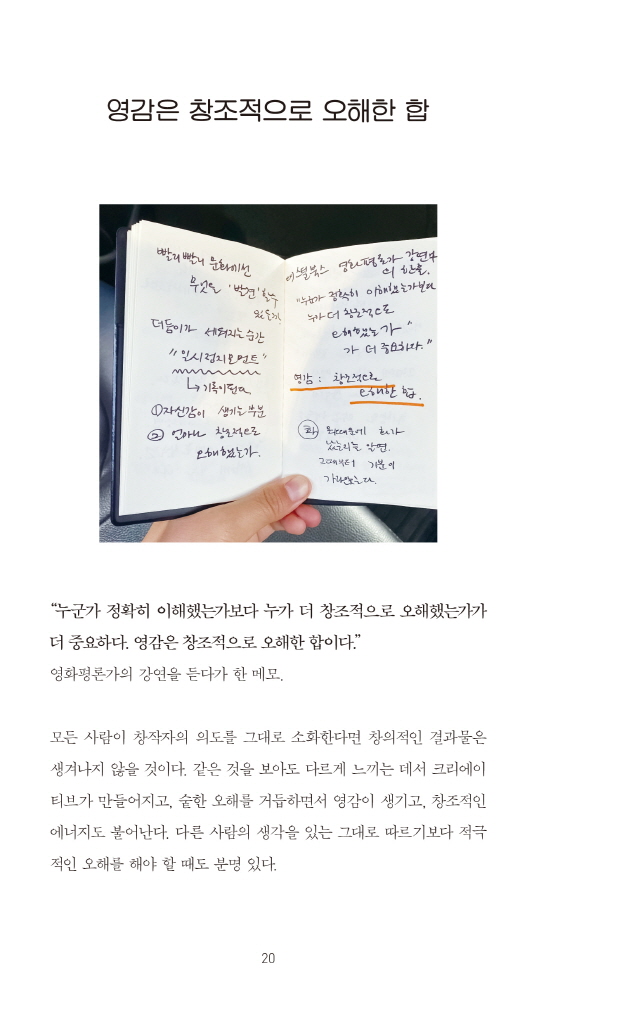 영감은 창조적으로 오해한 합
빨리빨리 문화에선
무엇을 '발견'할 수
있는가
더듬이가 세워지는 순간
"일시정지모먼트"
↳ 기록이 된다.
① 자신감이 생기는 부분
② 얼마나 창조적으로
오해했는가.
북스 영화평론가 강연
의 한마디.
"누가 정확히 이해했는가보다
누가 더 창조적으로
오해했는가"
가 더 중요하다."
영감 : 창조적으로
오해한 합.
화 때문에 화가
났는지를 알면.
그때부터 기분이
가라앉는다.
“누군가 정확히 이해했는가보다 누가 더 창조적으로 오해했는가가
더 중요하다. 영감은 창조적으로 오해한 합이다.”
영화평론가의 강연을 듣다가 한 메모.
모든 사람이 창작자의 의도를 그대로 소화한다면 창의적인 결과물은
생겨나지 않을 것이다. 같은 것을 보아도 다르게 느끼는 데서 크리에이
티브가 만들어지고, 숱한 오해를 거듭하면서 영감이 생기고, 창조적인
에너지도 불어난다. 다른 사람의 생각을 있는 그대로 따르기보다 적극
적인 오해를 해야 할 때도 분명 있다.
20